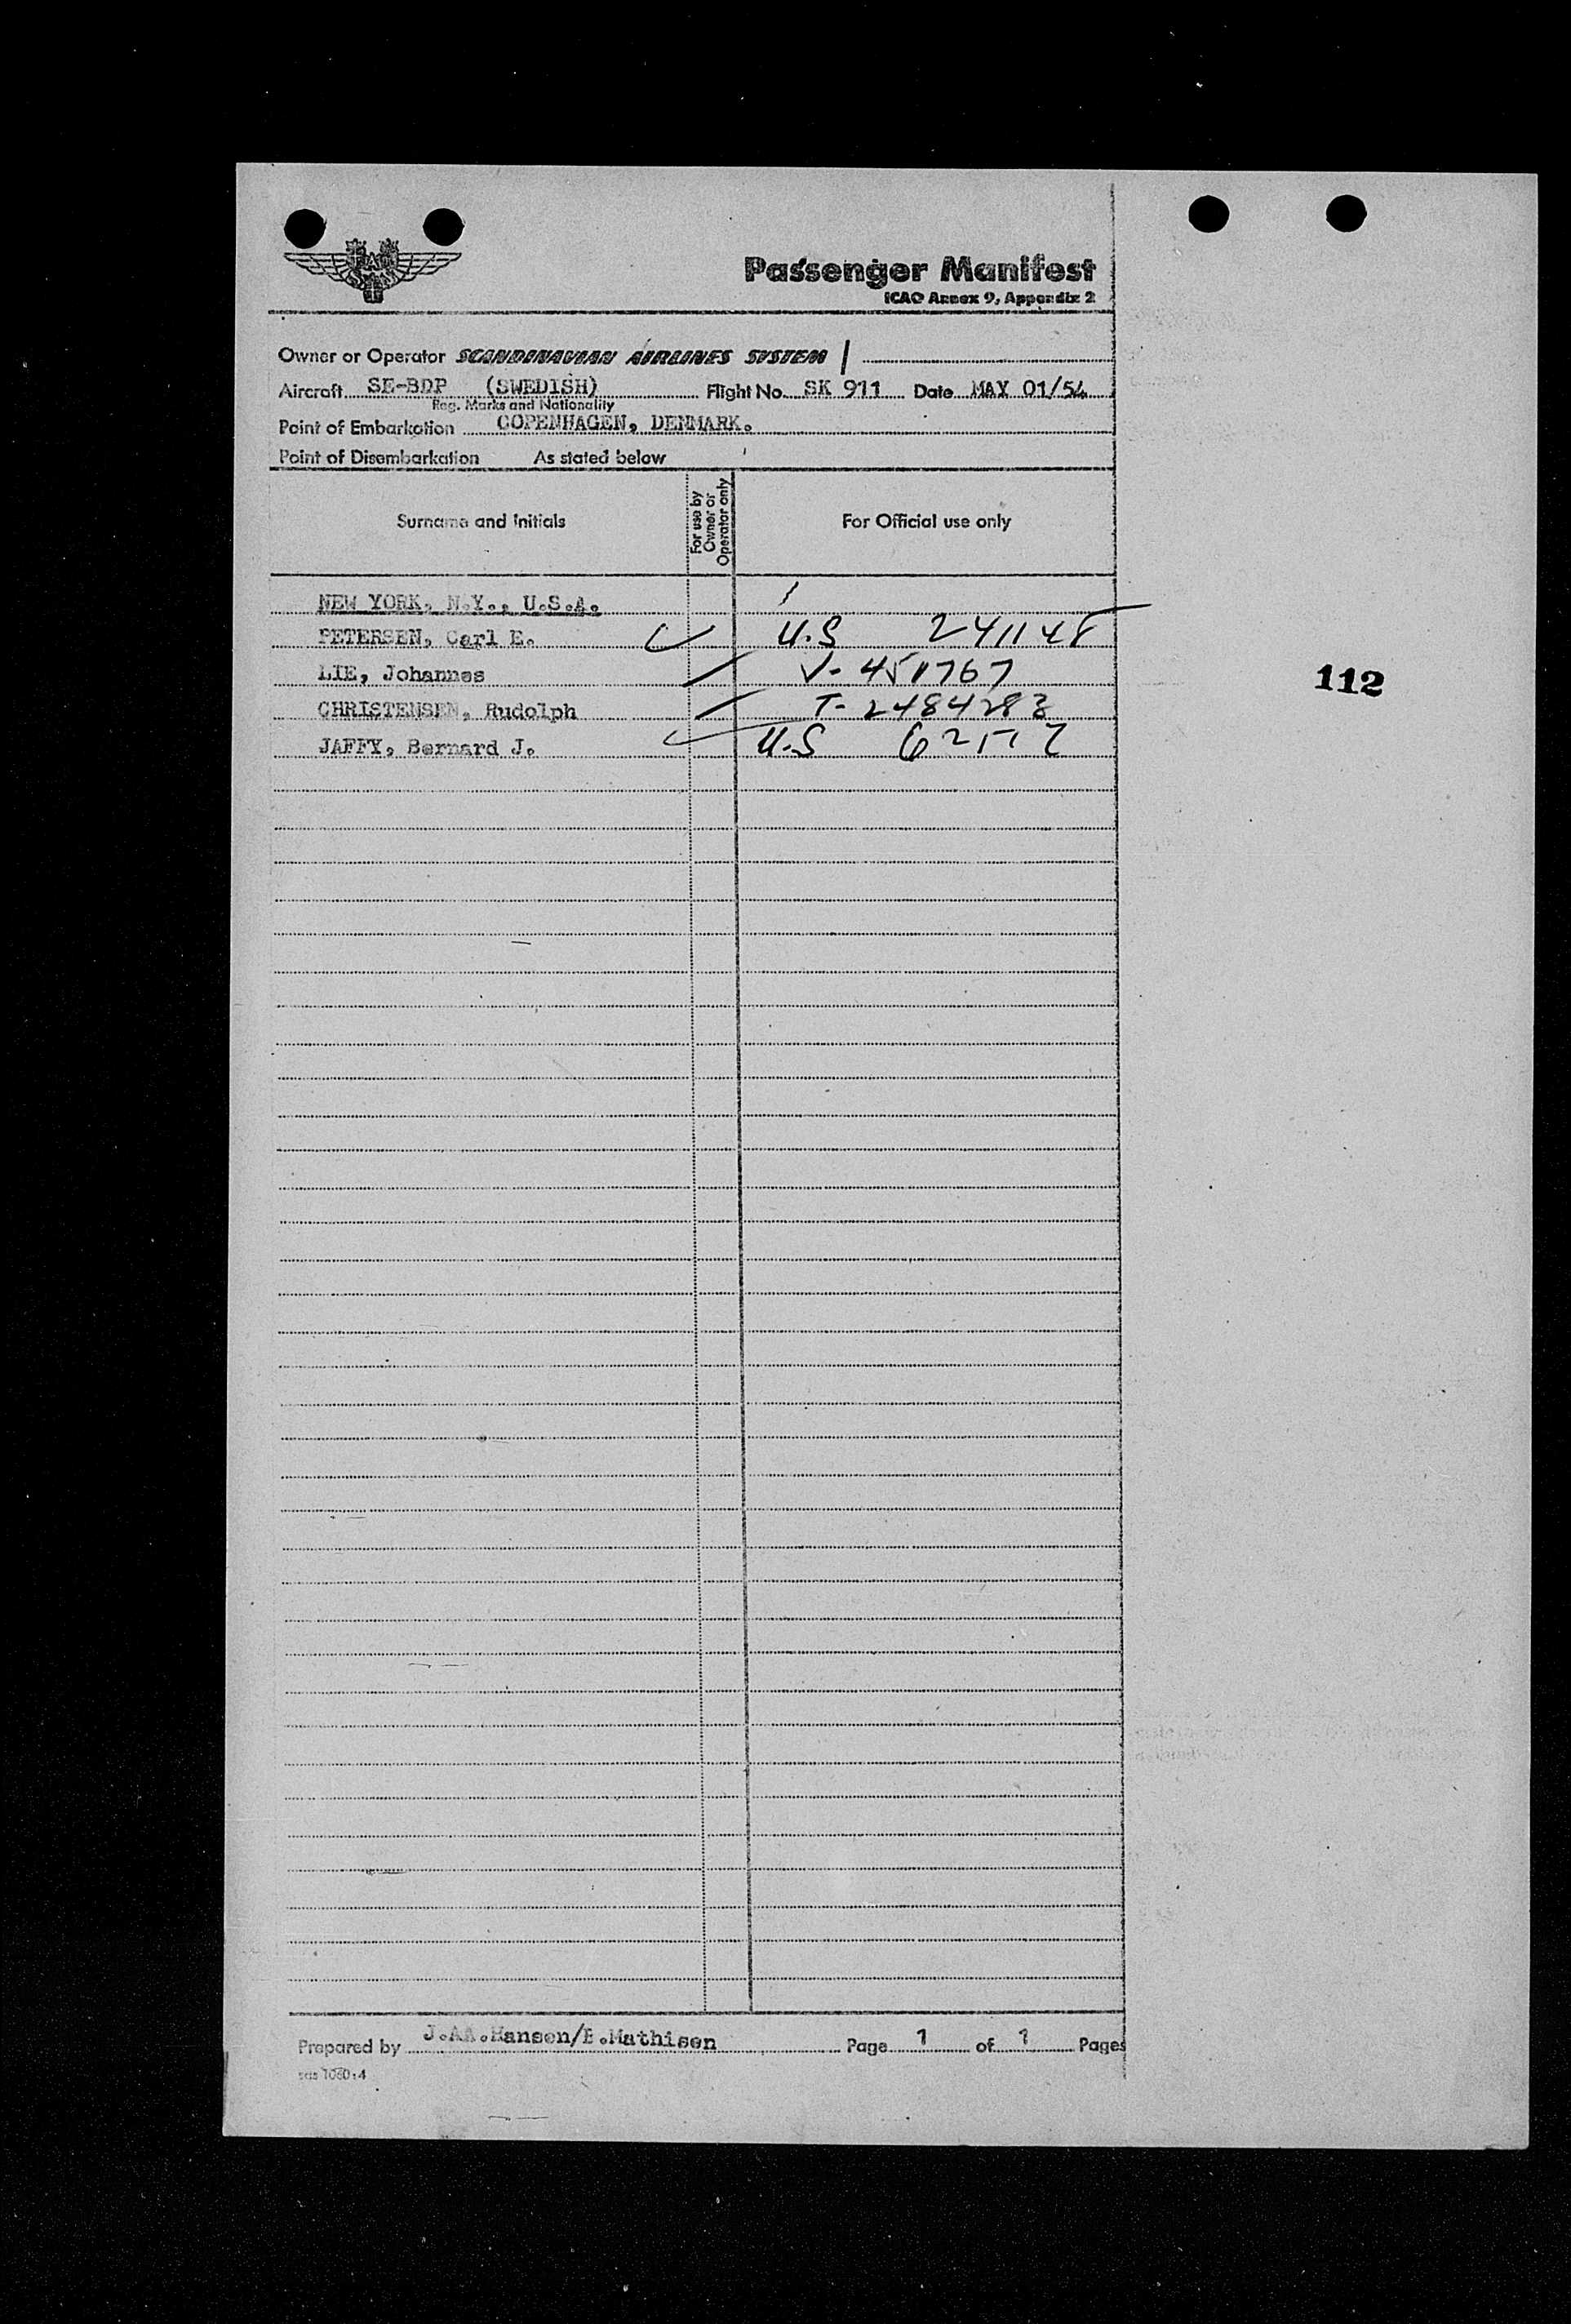 Passenger Manifest
ICAO Annex 9, Appendix 2
Owner or Operator SCANDINAVIAN AIRLINES SYSTEM
Aircraft SE-BDP (SWEDISH) Flight No. SK 911 Date MAY 01/54
Reg. Marks and Nationality
Point of Embarkation COPENHAGEN, DENMARK.
Point of Disembarkation As stated below
Surname and Initials For use by Owner or Operator only For Official use only
NEW YORK, N.Y., U.S.A.
PETERSEN, Carl E. U.S 241148
LIE, Johannes V- 451767
CHRISTENSEN, Rudolph T- 2484283
JAFFY, Bernard J. U.S
112
Prepared by J.AA.Hansen/E.Mathisen Page 1 of 1 Pages
sas 1060:4